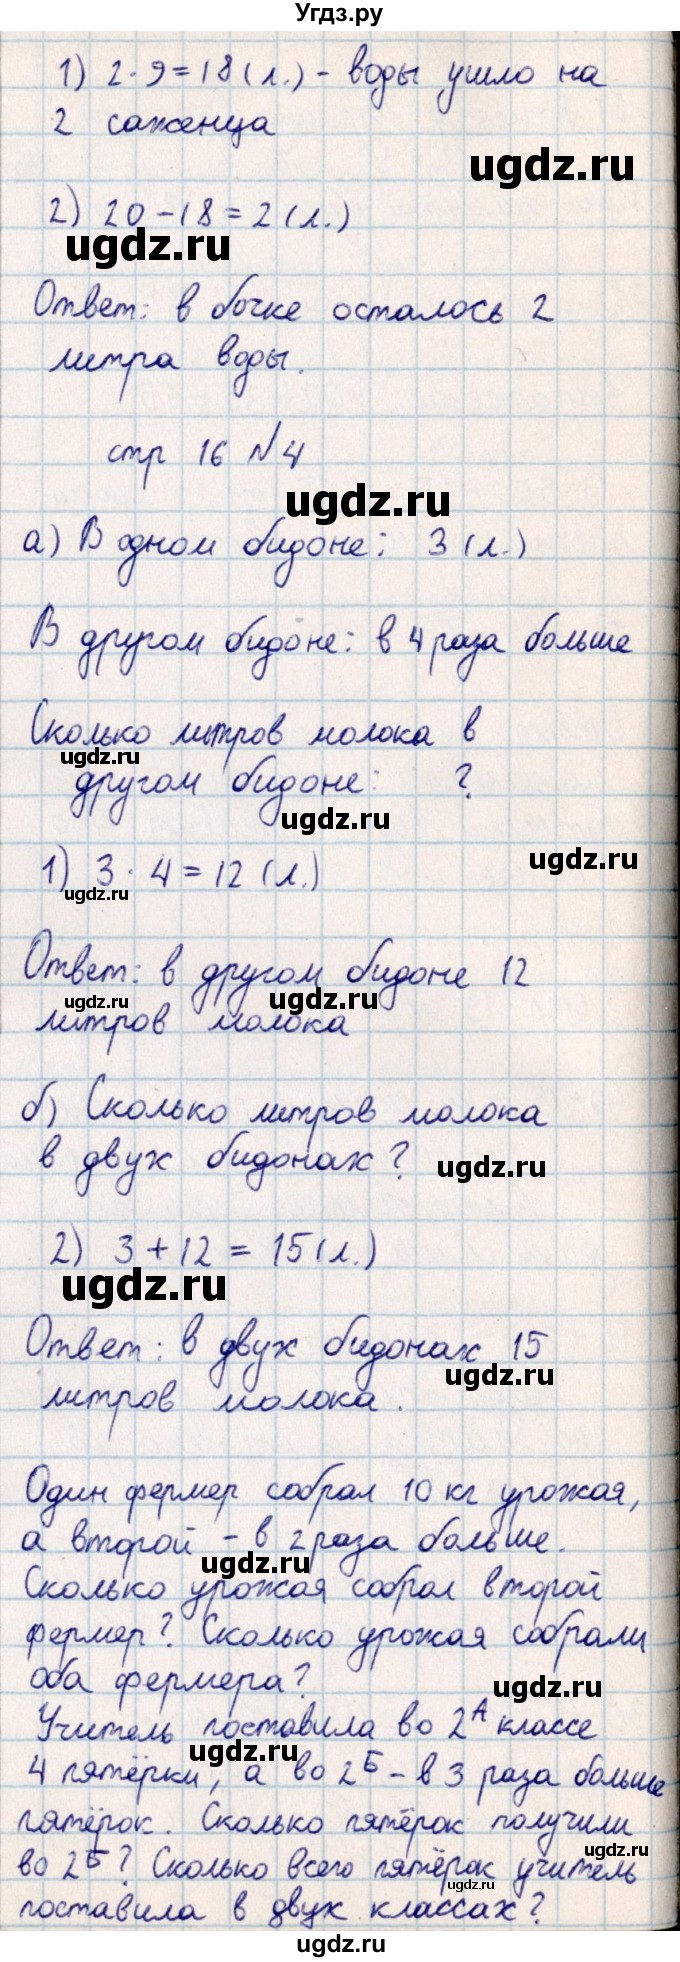 Угдз.ру
1) 2·9=18(л.) - воды ушло на
2 саженца
ugdz.ru
2) 20-18=2(л.)
ugdz.ru
Ответ: в бочке осталось 2
литра воды.
стр 16 №4
ugdz.ru
а) В одном бидоне: 3(л.)
В другом бидоне: в 4 раза больше
Сколько литров молока в
ugdz.ru
другом бидоне: ?
ugdz.ru
ugdz.ru
1) 3·4=12(л.)
ugdz.ru
Ответ: в другом бидоне 12
ugdz.ru ugdz.ru
литров молока
б) Сколько литров молока
в двух бидонах?
ugdz.ru
2) 3+12=15(л.)
ugdz.ru
Ответ: в двух бидонах 15
ugdz.ru
литров молока.
Один фермер собрал 10 кг урожая,
а второй - в 2 раза больше.
ugdz.ru
Сколько урожая собрал второй
фермер? Сколько урожая собрали
оба фермера?
ugdz.ru
Учитель поставила во 2А классе
ugdz.ru
4 пятёрки, а во 2Б - в 3 раза больше
пятёрок. Сколько пятёрок получили
ugdz.ru
во 2Б? Сколько всего пятёрок учитель
ugdz.ru
поставила в двух классах?
ugdz.ru